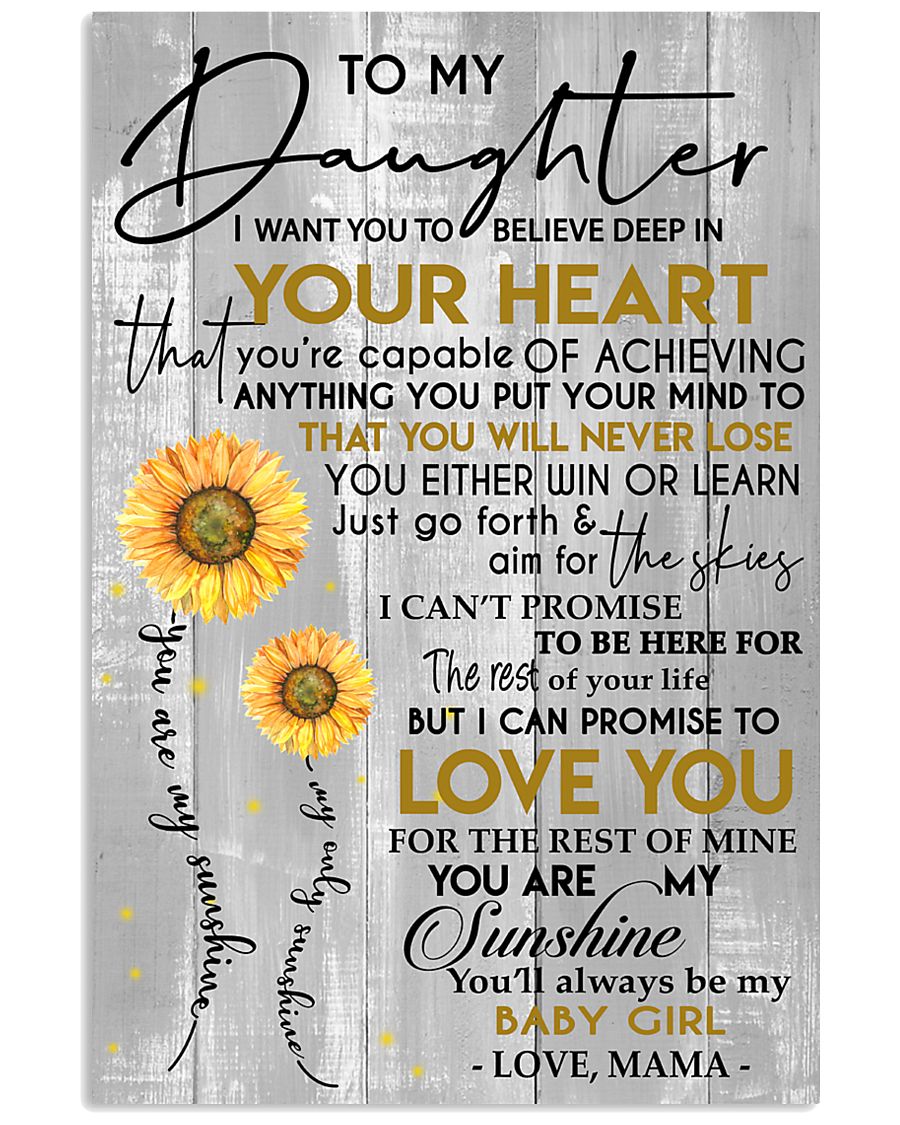 TO MY
Daughter
I WANT YOU TO BELIEVE DEEP IN
YOUR HEART
that you're capable OF ACHIEVING
ANYTHING YOU PUT YOUR MIND TO
THAT YOU WILL NEVER LOSE
YOU EITHER WIN OR LEARN
Just go forth &
aim for the skies
I CAN'T PROMISE
TO BE HERE FOR
The rest of your life
BUT I CAN PROMISE TO
LOVE YOU
FOR THE REST OF MINE
YOU ARE MY
Sunshine
You'll always be my
BABY GIRL
- LOVE, MAMA -
you are my sunshine
my only sunshine